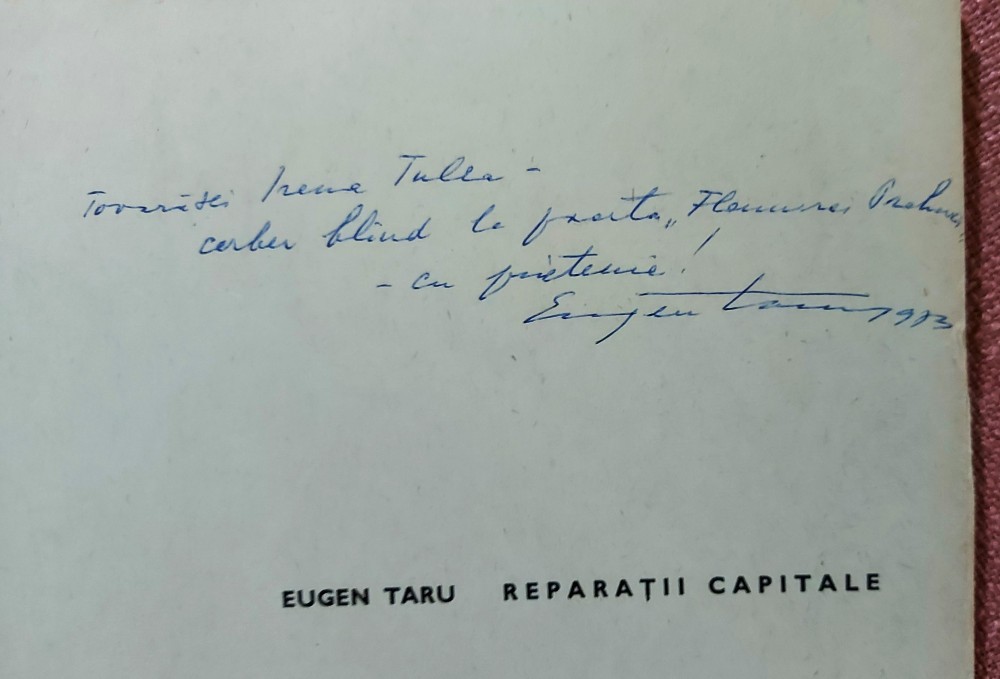 Tovarășei Irena Tulea -
cerber blînd la poarta „Flamurei Prahovei”
- cu prietenie!
Eugen Taru 1983
EUGEN TARU REPARAȚII CAPITALE